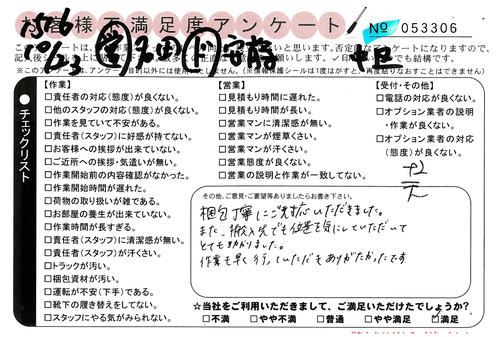 お客様不満足度アンケート
№ 053306
●チェックリスト
【作業】
□責任者の対応(態度)が良くない。
□他のスタッフの対応(態度)が良くない。
□作業を見ていて不安がある。
□責任者(スタッフ)に好感が持てない。
□お客様への挨拶が出来ていない。
□ご近所への挨拶・気遣いが無い。
□作業開始前の内容確認がなかった。
□作業開始時間が遅れた。
□荷物の取り扱いが雑である。
□お部屋の養生が出来ていない。
□作業時間が長すぎる。
□責任者(スタッフ)に清潔感が無い。
□責任者(スタッフ)が汗くさい。
□トラックが汚い。
□梱包資材が汚い。
□運転が不安(下手)である。
□靴下の履き替えをしてない。
□スタッフにやる気がみられない。
【営業】
□見積もり時間に遅れた。
□見積もり時間が長い。
□営業マンに清潔感が無い。
□営業マンが煙草くさい。
□営業マンが汗くさい。
□営業態度が良くない。
□営業の説明と作業が一致してない。
【受付・その他】
□電話の対応が良くない。
□オプション業者の説明
・作業が良くない。
□オプション業者の対応
(態度)が良くない。
その他、ご意見・ご要望等ありましたらお書き下さい。
梱包丁寧にご対応いただきました。
また、搬入先でも位置を気にしていただいて
とても助かりました。
作業も早く行っていただきありがたかったです
☆当社をご利用いただきまして、ご満足いただけたでしょうか?
□不満 □やや不満 □普通 □やや満足 □満足